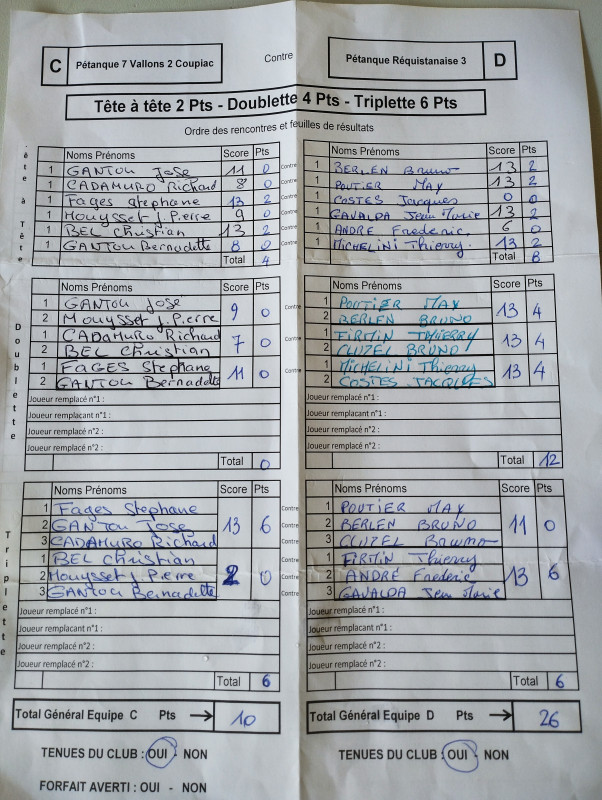 C Pétanque 7 Vallons 2 Coupiac
Contre
Pétanque Réquistanaise 3 D
Tête à tête 2 Pts - Doublette 4 Pts - Triplette 6 Pts
Ordre des rencontres et feuilles de résultats
Tête à Tête
Noms Prénoms Score Pts
1 GANTOU José 11 0 Contre
1 CADAMURO Richard 8 0 Contre
1 Fages stephane 13 2 Contre
1 Mouysset J. Pierre 9 0 Contre
1 BEL Christian 13 2 Contre
1 GANTOU Bernadette 8 0 Contre
Total 4
Noms Prénoms Score Pts
1 BERLEN Bruno 13 2
1 POUTIER MAY 13 2
1 COSTES Jacques 0 0
1 GAVALDA Jean Marie 13 2
1 ANDRÉ Frederic 6 0
1 MICHELINI Thierry 13 2
Total 8
Doublette
Noms Prénoms Score Pts
1 GANTOU José
2 Mouysset J. Pierre 9 0 Contre
1 CADAMURO Richard
2 BEL Christian 7 0 Contre
1 FAGES Stephane
2 GANTOU Bernadette 11 0 Contre
Joueur remplacé n°1 :
Joueur remplaçant n°1 :
Joueur remplacé n°2 :
Joueur remplacé n°2 :
Total 0
Noms Prénoms Score Pts
1 POUTIER MAY
2 BERLEN BRUNO 13 4
1 FIRMIN THIERRY
2 CLUZEL BRUNO 13 4
1 MICHELINI Thierry
2 COSTES JACQUES 13 4
Total 12
Triplette
Noms Prénoms Score Pts
1 Fages Stephane
2 GANTOU JOSE 13 6
3 CADAMURO Richard
1 BEL Christian
2 Mouysset J. Pierre 2 0
3 GANTOU Bernadette
Contre
Contre
Contre
Contre
Contre
Contre
Joueur remplacé n°1 :
Joueur remplaçant n°1 :
Joueur remplacé n°2 :
Joueur remplacé n°2 :
Total 6
Noms Prénoms Score Pts
1 POUTIER MAY
2 BERLEN BRUNO 11 0
3 CLUZEL
1 FIRMIN Thierry
2 ANDRÉ Frederic 13 6
3 GAVALDA Jean Marie
Total 6
Total Général Equipe C Pts → 10
Total Général Equipe D Pts → 26
TENUES DU CLUB : OUI - NON
TENUES DU CLUB : OUI - NON
FORFAIT AVERTI : OUI - NON